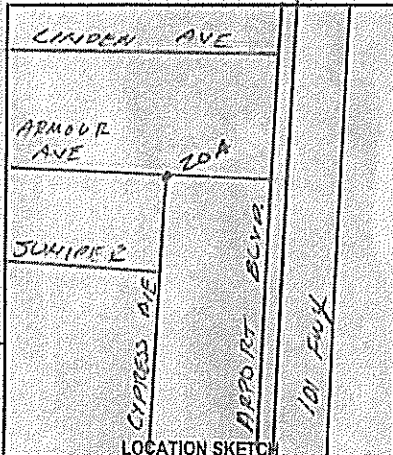 LINDEN AVE
ARMOUR
AVE
20A
JUNIPER
CYPRESS AVE
ARPORT BLVD.
101 FWY
LOCATION SKETCH